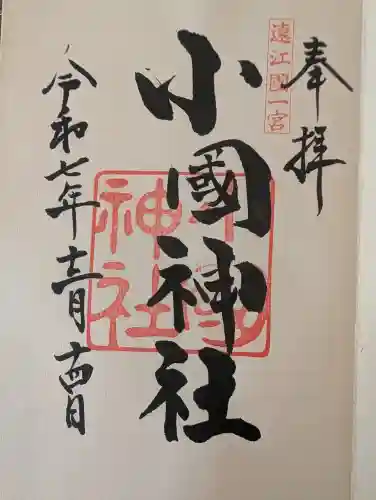 奉拝
遠江國一宮
小國神社
小國神社
令和七年十二月十四日